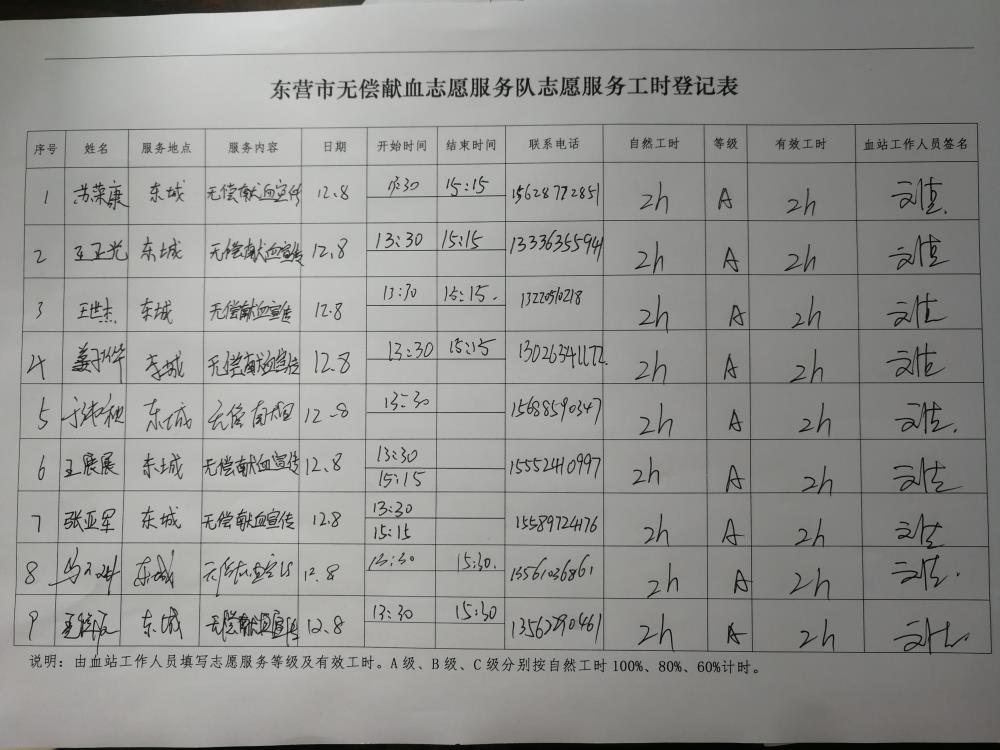 东营市无偿献血志愿服务队志愿服务工时登记表
序号 姓名 服务地点 服务内容 日期 开始时间 结束时间 联系电话 自然工时 等级 有效工时 血站工作人员签名
1 苏荣康 东城 无偿献血宣传 12.8 13:30 15:15 15628772851 2h A 2h
2 王正光 东城 无偿献血宣传 12.8 13:30 15:15 13336355941 2h A 2h
3 王世杰 东城 无偿献血宣传 12.8 13:30 15:15. 13220510218 2h A 2h
4 东城 无偿献血宣传 12.8 13:30 15:15 2h A 2h
5 东城 无偿献血 12.8 13:30 15688590347 2h A 2h
6 王展展 东城 无偿献血宣传 12.8 13:30 15552410997 2h A 2h
15:15
7 张亚军 东城 无偿献血宣传 12.8 13:30 15589724176 2h A 2h
15:15
8 东城 12.8 13:30 15:30. 13561036861 2h A 2h
9 东城 无偿献血宣传 12.8 13:30 15:30 13563290461 2h A 2h
说明：由血站工作人员填写志愿服务等级及有效工时。A级、B级、C级分别按自然工时100%、80%、60%计时。